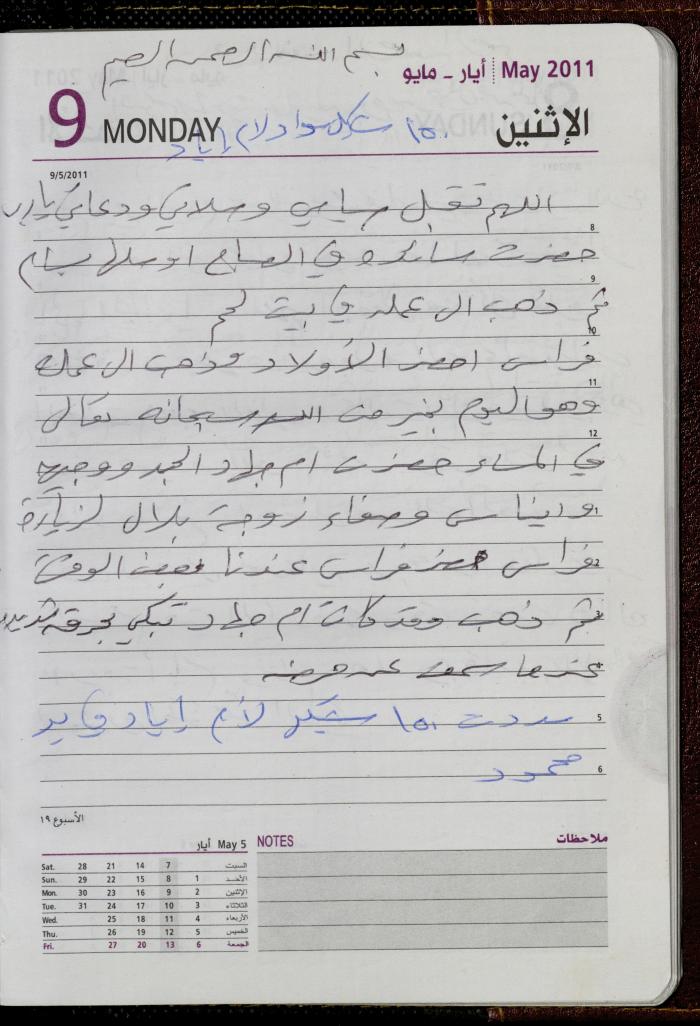 بسم الله الرحمن الرحيم
أيار - مايو May 2011
9 MONDAY الإثنين
١٥٠ شيكل سداد لام إياد
9/5/2011
اللهم تقبل صيامي وصلاتي ودعائي يا رب
8
حضرت في الصباح اوصلها بسام
9
ثم ذهب الى عمله في بيت لحم
10
فراس احضر الأولاد وذهب الى عمله
11
وهو اليوم بخير من الله سبحانه تعالى
12
في المساء حضرت ام جهاد الجد ووجيه
1
وايناس وصفاء زوجة بلال لزيارة
2
فراس حضر فراس عندنا بعض الوقت
3
ثم ذهب وقد كانت ام جهاد تبكي بحرقة شديدة
4
عندما سمعت عن مرضه
5
سددت ١٥٠ شيكل لأم إياد في يد
6
محمود
الأسبوع ١٩
May 5 أيار
Sat. 28 21 14 7 السبت
Sun. 29 22 15 8 1 الأحد
Mon. 30 23 16 9 2 الإثنين
Tue. 31 24 17 10 3 الثلاثاء
Wed. 25 18 11 4 الأربعاء
Thu. 26 19 12 5 الخميس
Fri. 27 20 13 6 الجمعة
NOTES ملاحظات